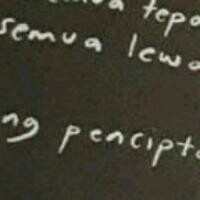 tepa
semua lewa
ng pencipta